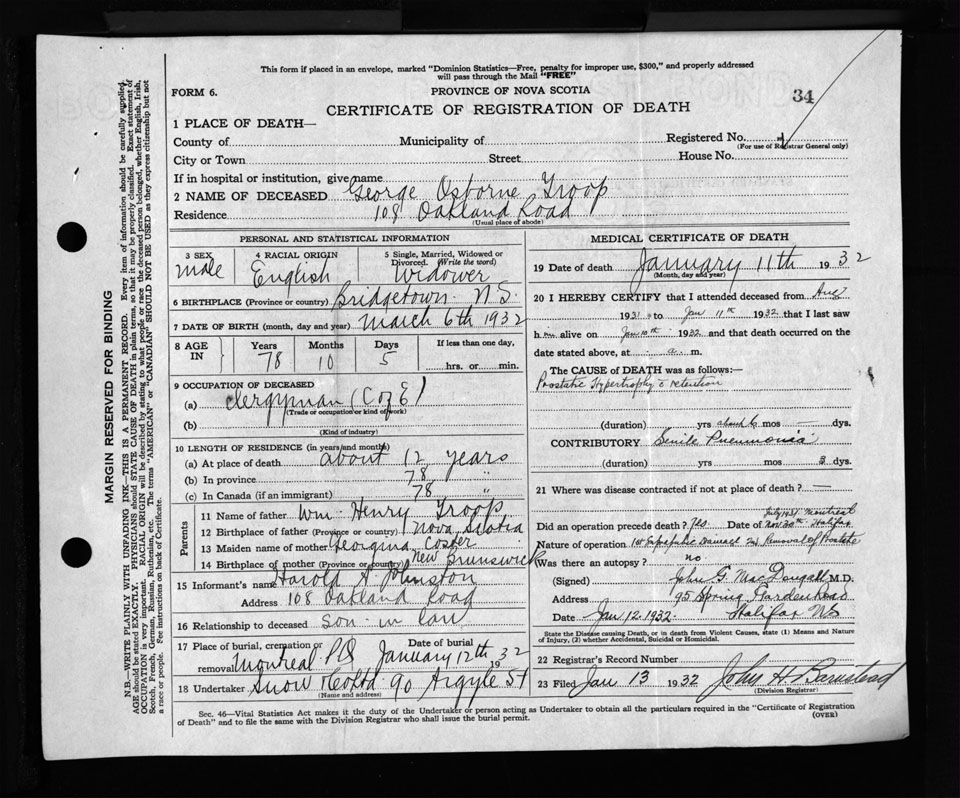 This form if placed in an envelope, marked "Dominion Statistics—Free, penalty for improper use, $300," and properly addressed
will pass through the Mail "FREE"
FORM 6.
PROVINCE OF NOVA SCOTIA
34
CERTIFICATE OF REGISTRATION OF DEATH
1 PLACE OF DEATH—
County of Municipality of Registered No.
(For use of Registrar General only)
City or Town Street House No.
If in hospital or institution, give name
2 NAME OF DECEASED George Osborne Troop
Residence 108 Oakland Road
(Usual place of abode)
PERSONAL AND STATISTICAL INFORMATION
3 SEX male
4 RACIAL ORIGIN English
5 Single, Married, Widowed or Divorced. (Write the word) Widower
6 BIRTHPLACE (Province or country) Bridgetown N.S.
7 DATE OF BIRTH (month, day and year) March 6th 1932
8 AGE IN Years 78 Months 10 Days 5 If less than one day, hrs. or min.
9 OCCUPATION OF DECEASED
(a) Clergyman (C of E)
(Trade or occupation or kind of work)
(b)
(Kind of industry)
10 LENGTH OF RESIDENCE (in years and months)
(a) At place of death about 12 years
(b) In province 78 "
(c) In Canada (if an immigrant) 78 "
Parents
11 Name of father Wm. Henry Troop
12 Birthplace of father (Province or country) Nova Scotia
13 Maiden name of mother Georgina Coster
14 Birthplace of mother (Province or country) New Brunswick
15 Informant's name Harold A Johnston
Address 108 Oakland Road
16 Relationship to deceased son-in law
17 Place of burial, cremation or removal Montreal PQ Date of burial January 12th 1932
18 Undertaker Snow & Co Ltd 90 Argyle St
(Name and address)
MEDICAL CERTIFICATE OF DEATH
19 Date of death January 11th 1932
(Month, day and year)
20 I HEREBY CERTIFY that I attended deceased from Aug
1931 to Jan 11th 1932 that I last saw
him alive on Jan 10th 1932 and that death occurred on the
date stated above, at a. m.
The CAUSE of DEATH was as follows:—
Prostatic Hypertrophy c retention
(duration) yrs about 6 mos dys.
CONTRIBUTORY Senile Pneumonia
(duration) yrs mos 3 dys.
21 Where was disease contracted if not at place of death? —
Did an operation precede death? Yes Date of July 1931 Montreal
Nov 30th Halifax
Nature of operation 1st Suprapubic 2nd Removal of Prostate
Was there an autopsy? no
(Signed) John G. MacDougall M.D.
Address 95 Spring Garden Road
Date Jan 12. 1932. Halifax NS
State the Disease causing Death, or in death from Violent Causes, state (1) Means and Nature
of Injury, (2) whether Accidental, Suicidal or Homicidal.
22 Registrar's Record Number
23 Filed Jan 13 1932 John H Barnstead
(Division Registrar)
Sec. 46—Vital Statistics Act makes it the duty of the Undertaker or person acting as Undertaker to obtain all the particulars required in the "Certificate of Registration
of Death" and to file the same with the Division Registrar who shall issue the burial permit.
(OVER)
MARGIN RESERVED FOR BINDING
N.B.—WRITE PLAINLY WITH UNFADING INK—THIS IS A PERMANENT RECORD. Every item of information should be carefully supplied.
AGE should be stated EXACTLY. PHYSICIANS should STATE CAUSE OF DEATH in plain terms, so that it may be properly classified. Exact statement of
OCCUPATION is very important. RACIAL ORIGIN will be described by stating to what people or race the deceased person belonged, whether English, Irish,
Scotch, French, German, Russian, Ruthenian, etc. The terms "AMERICAN" or "CANADIAN" SHOULD NOT BE USED as they express citizenship but not
a race or people. Fee instructions on back of Certificate.